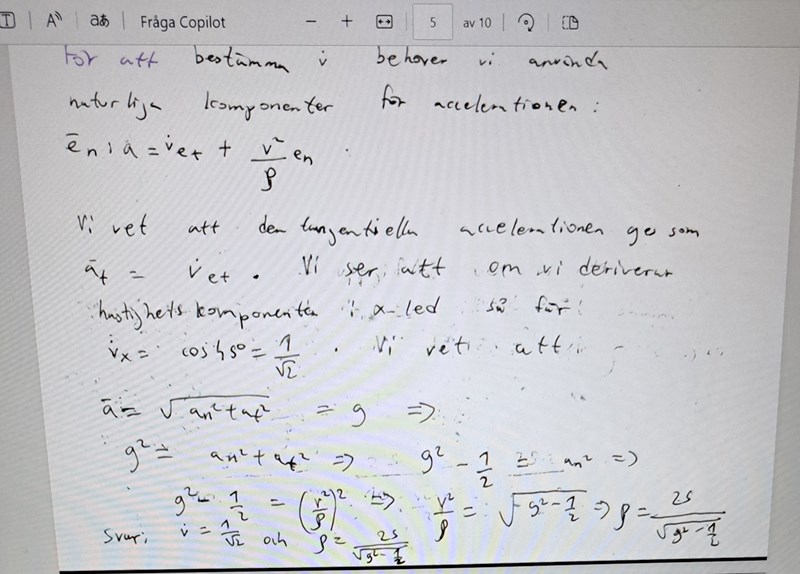 Fråga Copilot 5 av 10
För att bestämma v̇ behöver vi använda
naturliga komponenter för accelerationen :
ē_n : a = v̇e_t + v²/ρ e_n
Vi vet att den tangentiella accelerationen ges som
ā_t = v̇e_t . Vi ser att om vi deriverar
hastighetskomponenten i x-led så får
v̇_x = cos45° = 1/√2 . Vi vet att
ā = √(a_n² + a_t²) = g ⇒
g² = a_n² + a_t² ⇒ g² - 1/2 = a_n² ⇒
g² - 1/2 = (v²/ρ)² ⇒ v²/ρ = √(g² - 1/2) ⇒ ρ = 25/√(g² - 1/2)
Svar: v̇ = 1/√2 och ρ = 25/√(g² - 1/2)